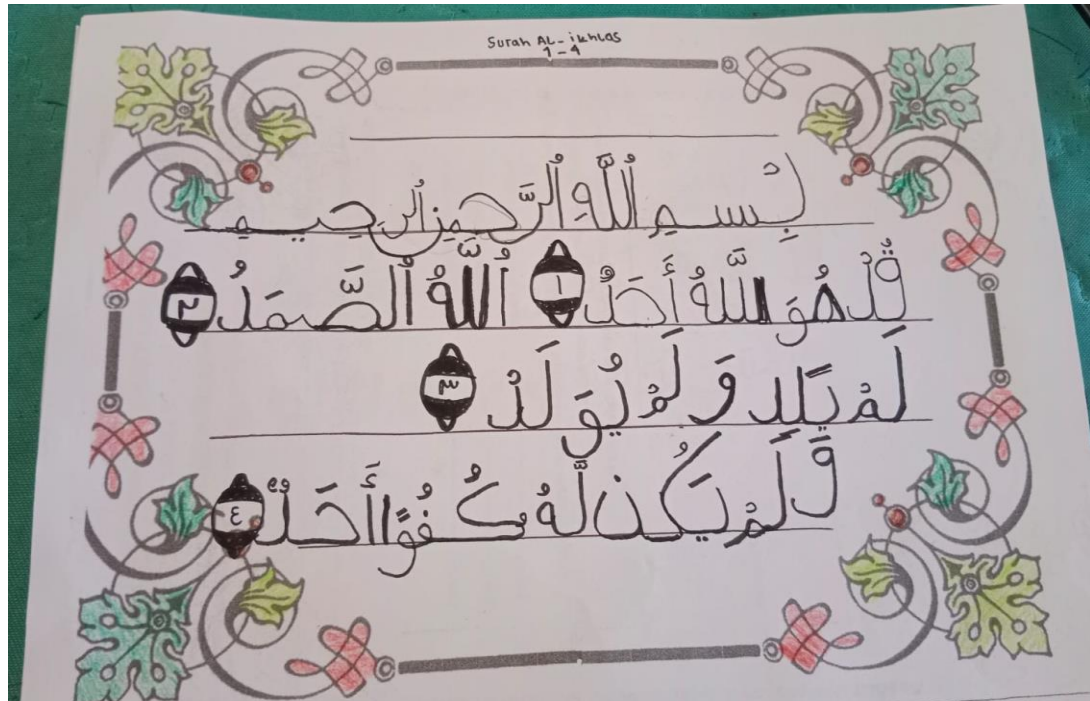 Surah AL-ikhlas
1-4
بِسْمِ ٱللَّهِ ٱلرَّحْمَٰنِ ٱلرَّحِيمِ
قُلْ هُوَ ٱللَّهُ أَحَدٌ ١ ٱللَّهُ ٱلصَّمَدُ ٢
لَمْ يَلِدْ وَلَمْ يُولَدْ ٣
وَلَمْ يَكُن لَّهُ كُفُوًا أَحَدٌ ٤